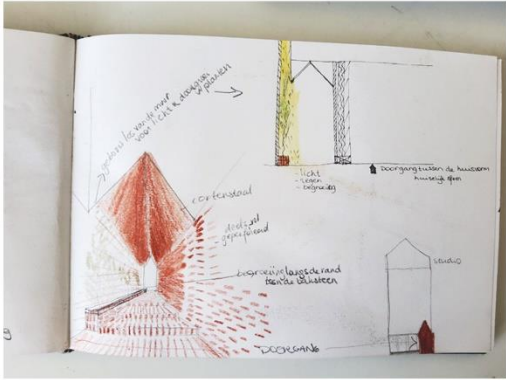 los van de muur
voor licht & doorgroei
v planten
cortenstaal
deels
geperforeerd
begroeiing langs de rand
tegen de baksteen
DOORGANG
- licht
- regen
- begroeiing
Doorgang tussen de huizen
huiselijk
studio
g